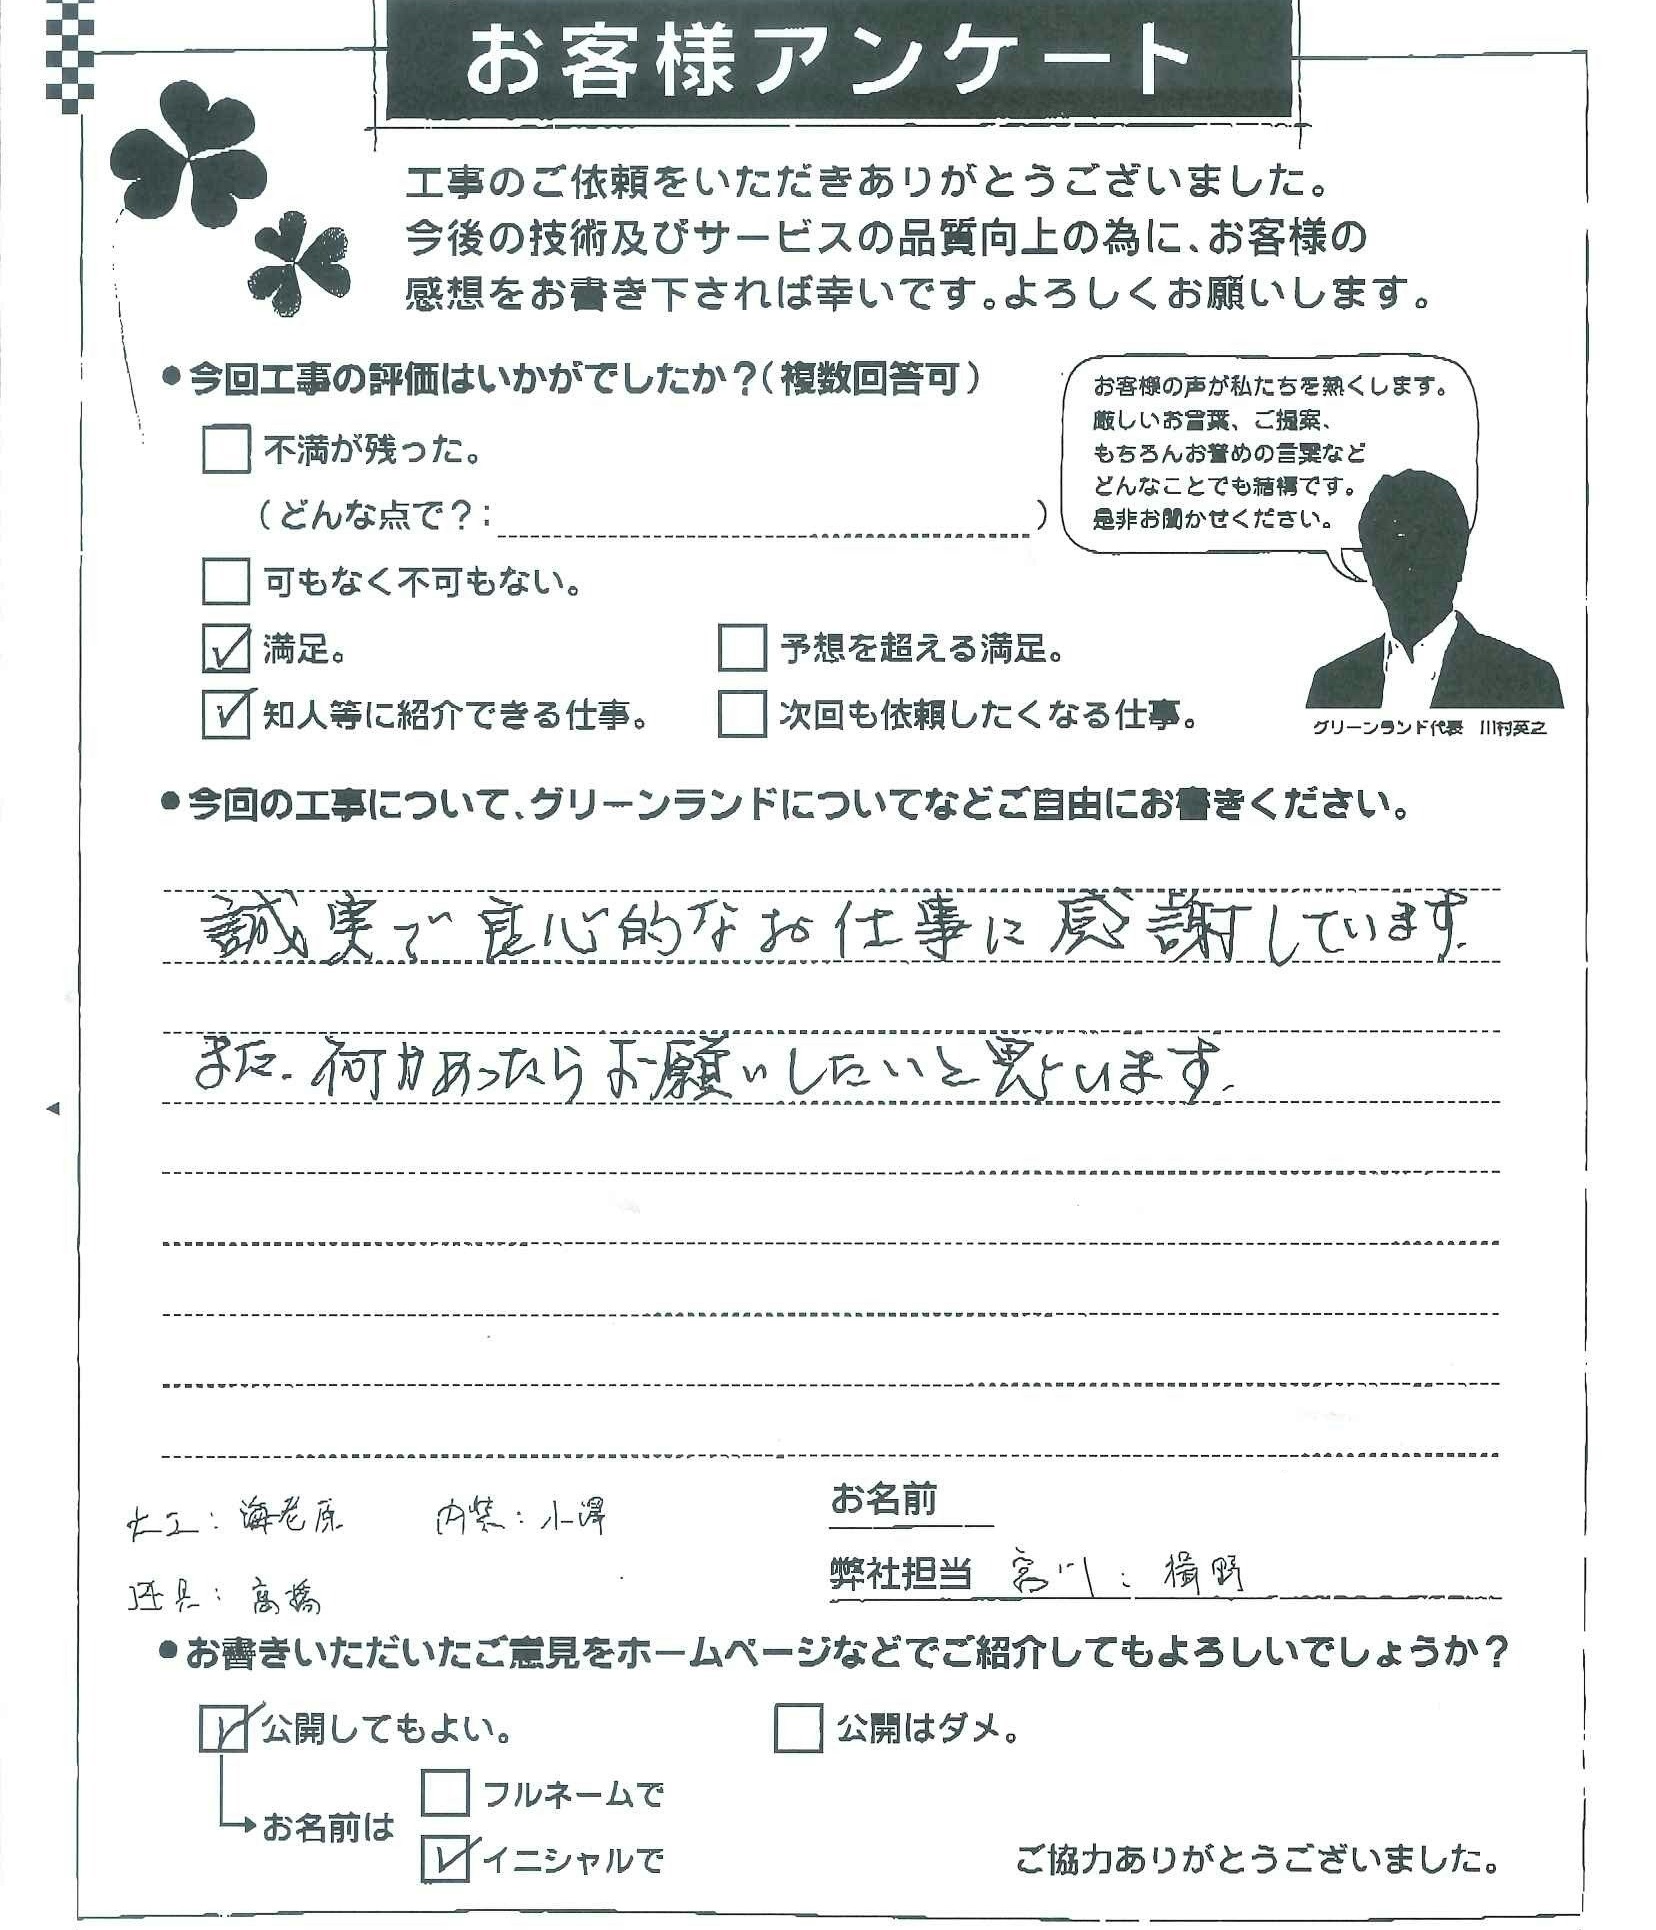 お客様アンケート
工事のご依頼をいただきありがとうございました。
今後の技術及びサービスの品質向上の為に、お客様の
感想をお書き下されば幸いです。よろしくお願いします。
●今回工事の評価はいかがでしたか？(複数回答可)
お客様の声が私たちを熱くします。
厳しいお言葉、ご提案、
もちろんお誉めの言葉など
どんなことでも結構です。
是非お聞かせください。
不満が残った。
(どんな点で？: )
可もなく不可もない。
満足。
予想を超える満足。
知人等に紹介できる仕事。
次回も依頼したくなる仕事。
グリーンランド代表 川村英之
●今回の工事について、グリーンランドについてなどご自由にお書きください。
誠実で良心的なお仕事に感謝しています。
また、何かあったらお願いしたいと思います。
お名前
大工：海老原 内装：小澤
弊社担当 宮川：楫野
建具：高橋
●お書きいただいたご意見をホームページなどでご紹介してもよろしいでしょうか？
公開してもよい。
公開はダメ。
フルネームで
お名前は
イニシャルで
ご協力ありがとうございました。